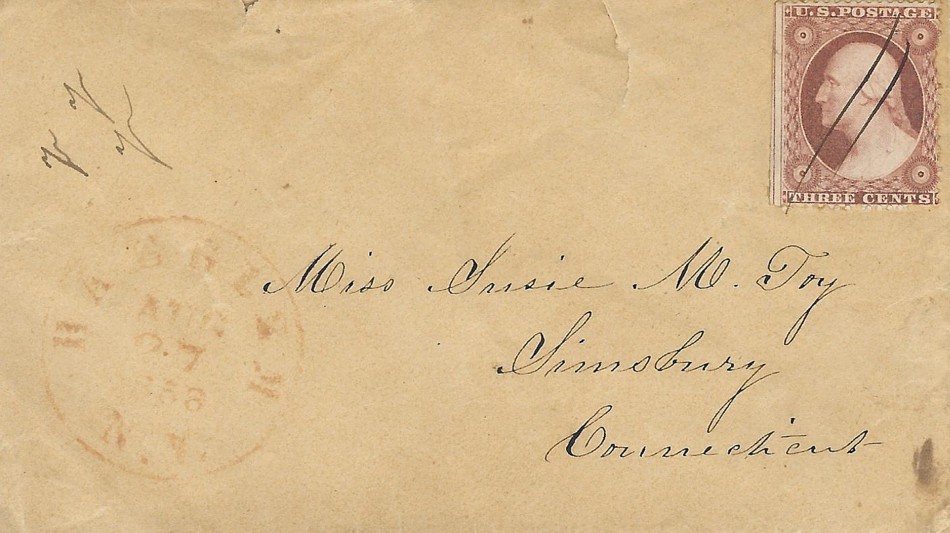 U.S. POSTAGE
THREE CENTS
AUG
27
1858
N.Y.
Miss Susie M. Toy
Simsbury
Connecticut